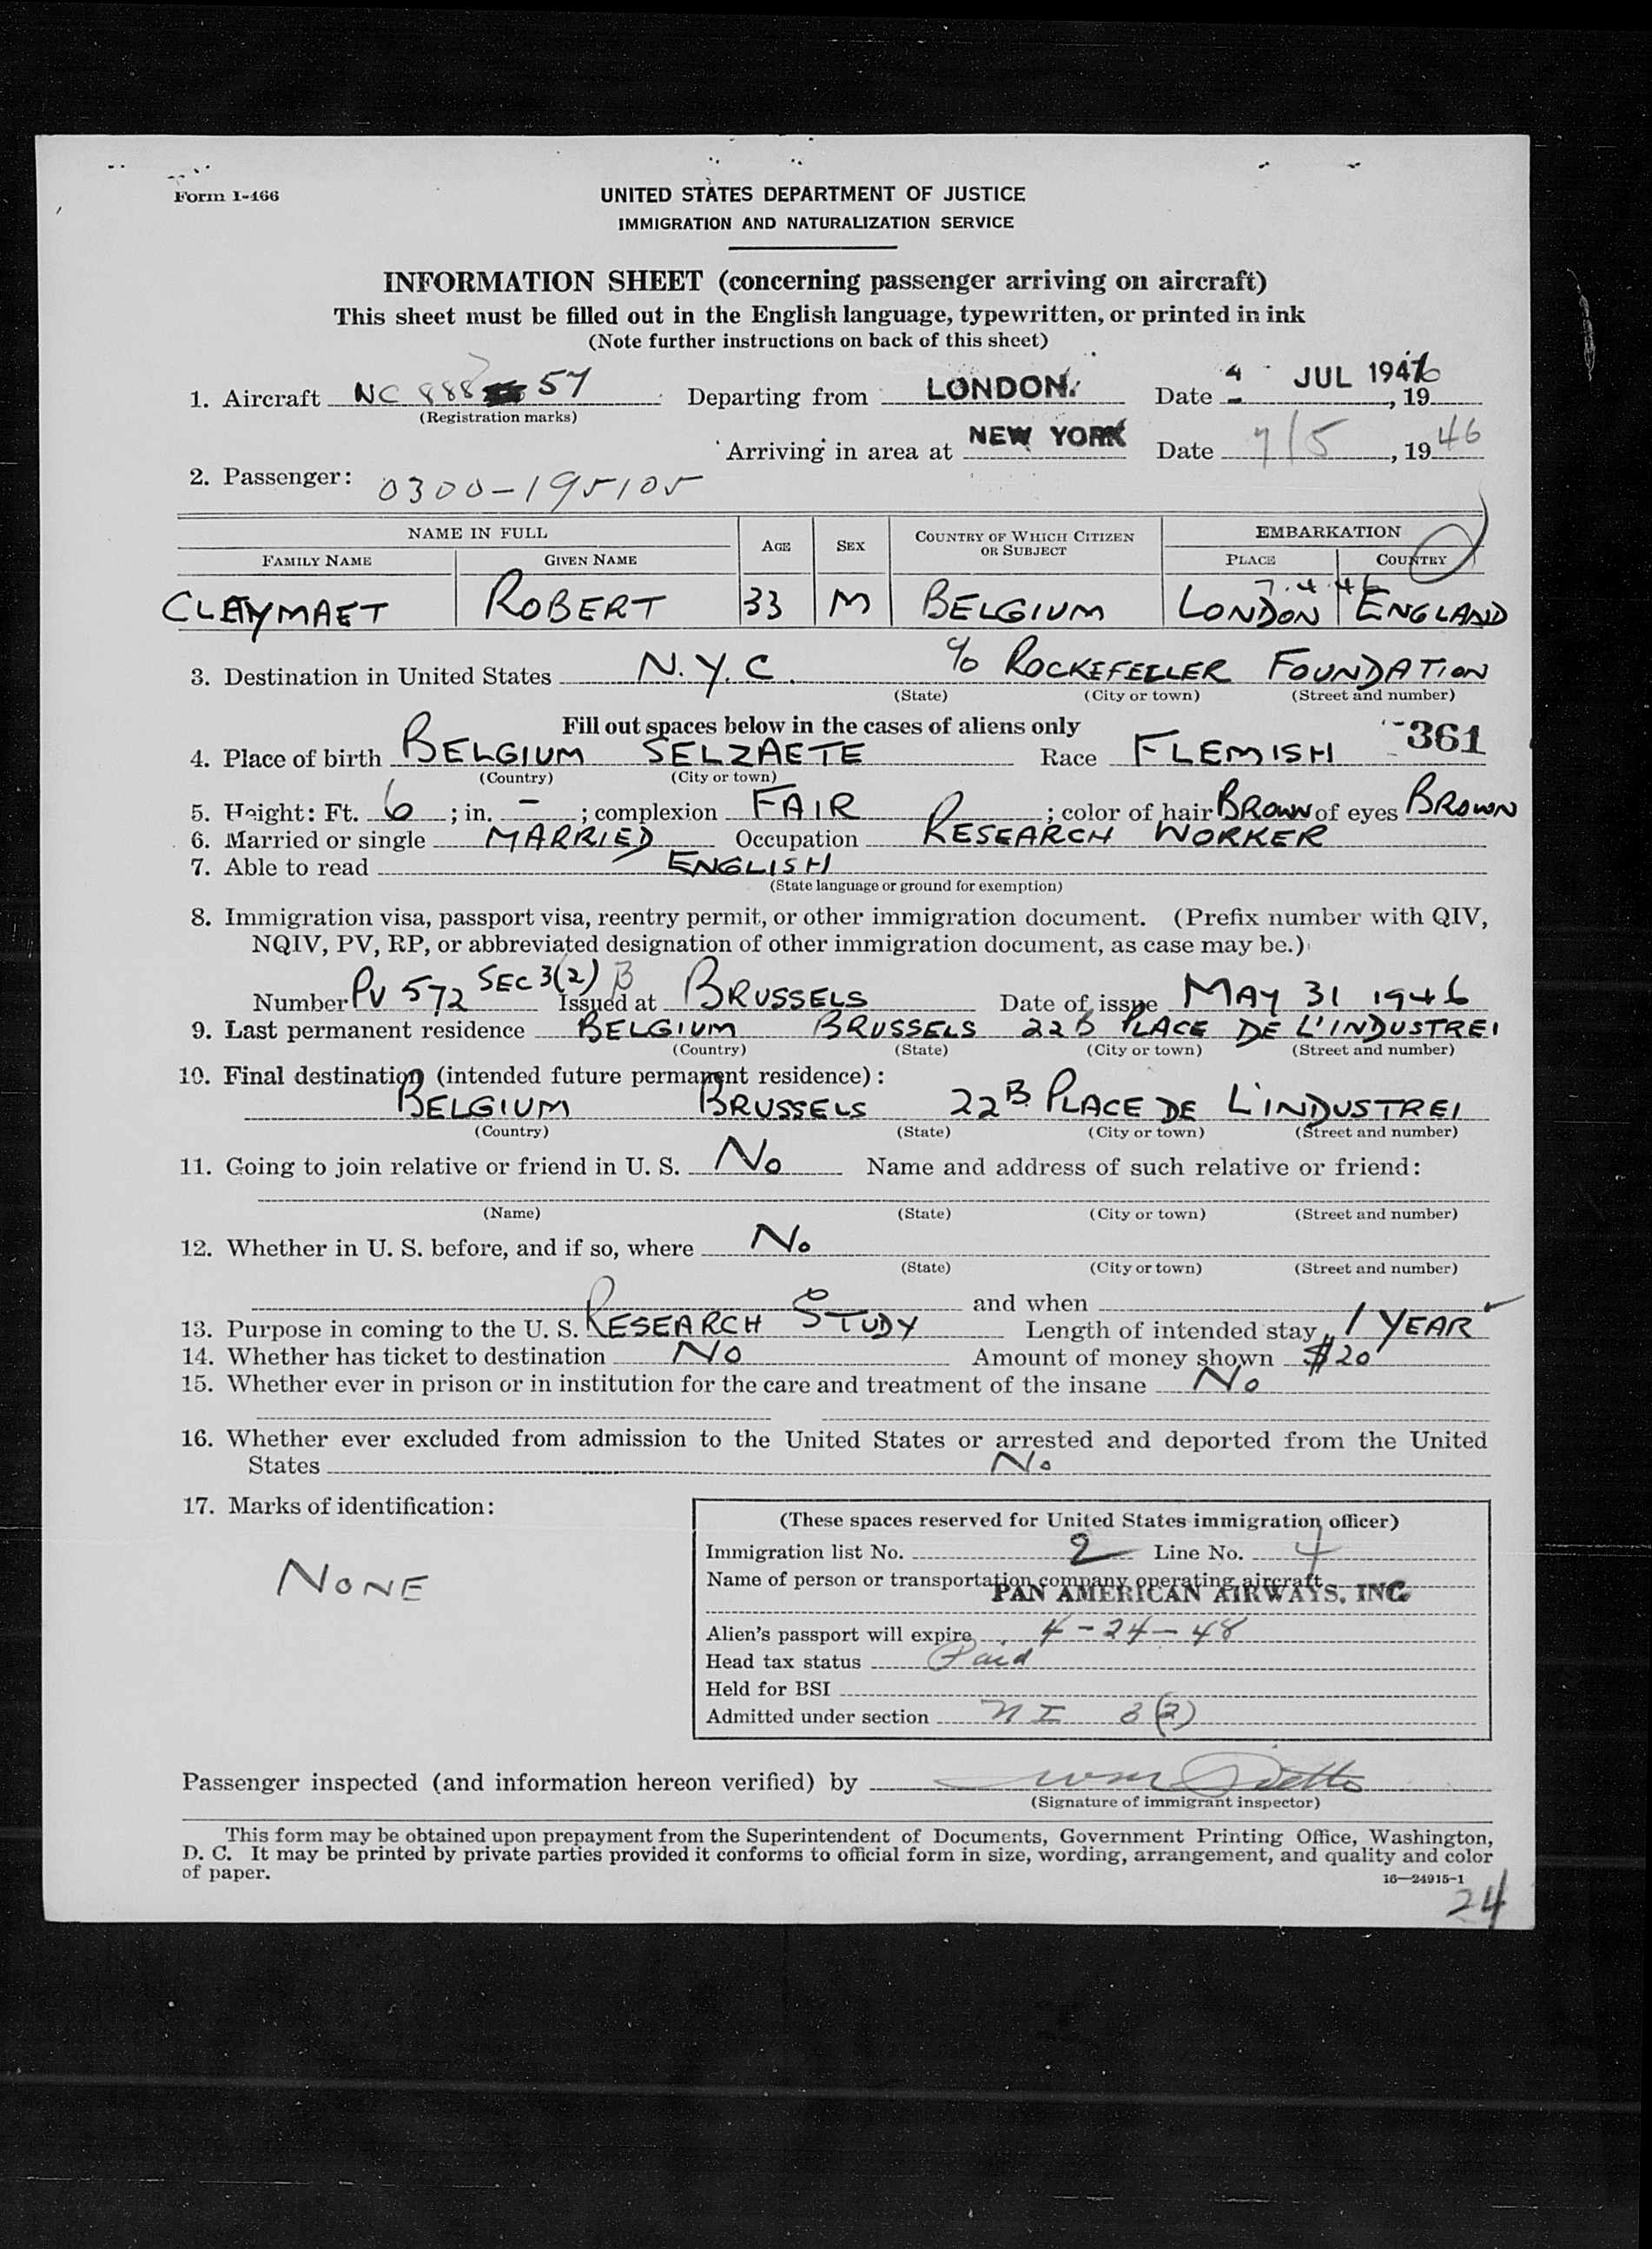 Form I-466
UNITED STATES DEPARTMENT OF JUSTICE
IMMIGRATION AND NATURALIZATION SERVICE
INFORMATION SHEET (concerning passenger arriving on aircraft)
This sheet must be filled out in the English language, typewritten, or printed in ink
(Note further instructions on back of this sheet)
1. Aircraft NC 888 57 Departing from LONDON. Date 4 JUL 1946, 19
(Registration marks)
Arriving in area at NEW YORK Date 7/5, 1946
2. Passenger: 0300-195105
NAME IN FULL AGE SEX COUNTRY OF WHICH CITIZEN OR SUBJECT EMBARKATION
FAMILY NAME GIVEN NAME PLACE COUNTRY
7.4.46
CLAYMAET ROBERT 33 M BELGIUM LONDON ENGLAND
3. Destination in United States N.Y.C. c/o ROCKEFELLER FOUNDATION
(State) (City or town) (Street and number)
Fill out spaces below in the cases of aliens only 361
4. Place of birth BELGIUM SELZAETE Race FLEMISH
(Country) (City or town)
5. Height: Ft. 6 ; in. - ; complexion FAIR ; color of hair BROWN of eyes BROWN
6. Married or single MARRIED Occupation RESEARCH WORKER
7. Able to read ENGLISH
(State language or ground for exemption)
8. Immigration visa, passport visa, reentry permit, or other immigration document. (Prefix number with QIV,
NQIV, PV, RP, or abbreviated designation of other immigration document, as case may be.)
Number PV 572 SEC 3(2) B Issued at BRUSSELS Date of issue MAY 31 1946
9. Last permanent residence BELGIUM BRUSSELS 22B PLACE DE L'INDUSTREI
(Country) (State) (City or town) (Street and number)
10. Final destination (intended future permanent residence):
BELGIUM BRUSSELS 22B PLACE DE L'INDUSTREI
(Country) (State) (City or town) (Street and number)
11. Going to join relative or friend in U. S. NO Name and address of such relative or friend:
(Name) (State) (City or town) (Street and number)
12. Whether in U. S. before, and if so, where NO
(State) (City or town) (Street and number)
and when
13. Purpose in coming to the U. S. RESEARCH STUDY Length of intended stay 1 YEAR
14. Whether has ticket to destination NO Amount of money shown $20
15. Whether ever in prison or in institution for the care and treatment of the insane NO
16. Whether ever excluded from admission to the United States or arrested and deported from the United
States NO
17. Marks of identification:
NONE
(These spaces reserved for United States immigration officer)
Immigration list No. 2 Line No. 4
Name of person or transportation company operating aircraft
PAN AMERICAN AIRWAYS, INC.
Alien's passport will expire 4-24-48
Head tax status Paid
Held for BSI
Admitted under section NI 3(2)
Passenger inspected (and information hereon verified) by
(Signature of immigrant inspector)
This form may be obtained upon prepayment from the Superintendent of Documents, Government Printing Office, Washington,
D. C. It may be printed by private parties provided it conforms to official form in size, wording, arrangement, and quality and color
of paper.
16—24915-1
24